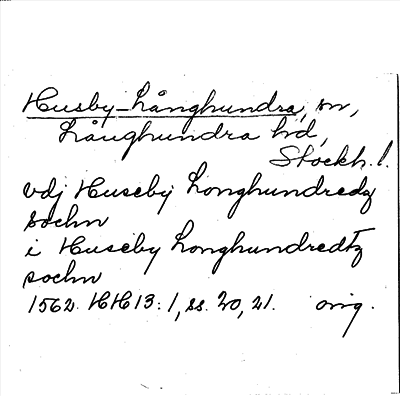 Husby-Långhundra, sn,
Långhundra hd,
Stockh. l.
vdj Huseby Longhundredz
sochn
i Huseby Longhundredtz
sochn
1562 HH 13:1, ss. 20, 21. orig.